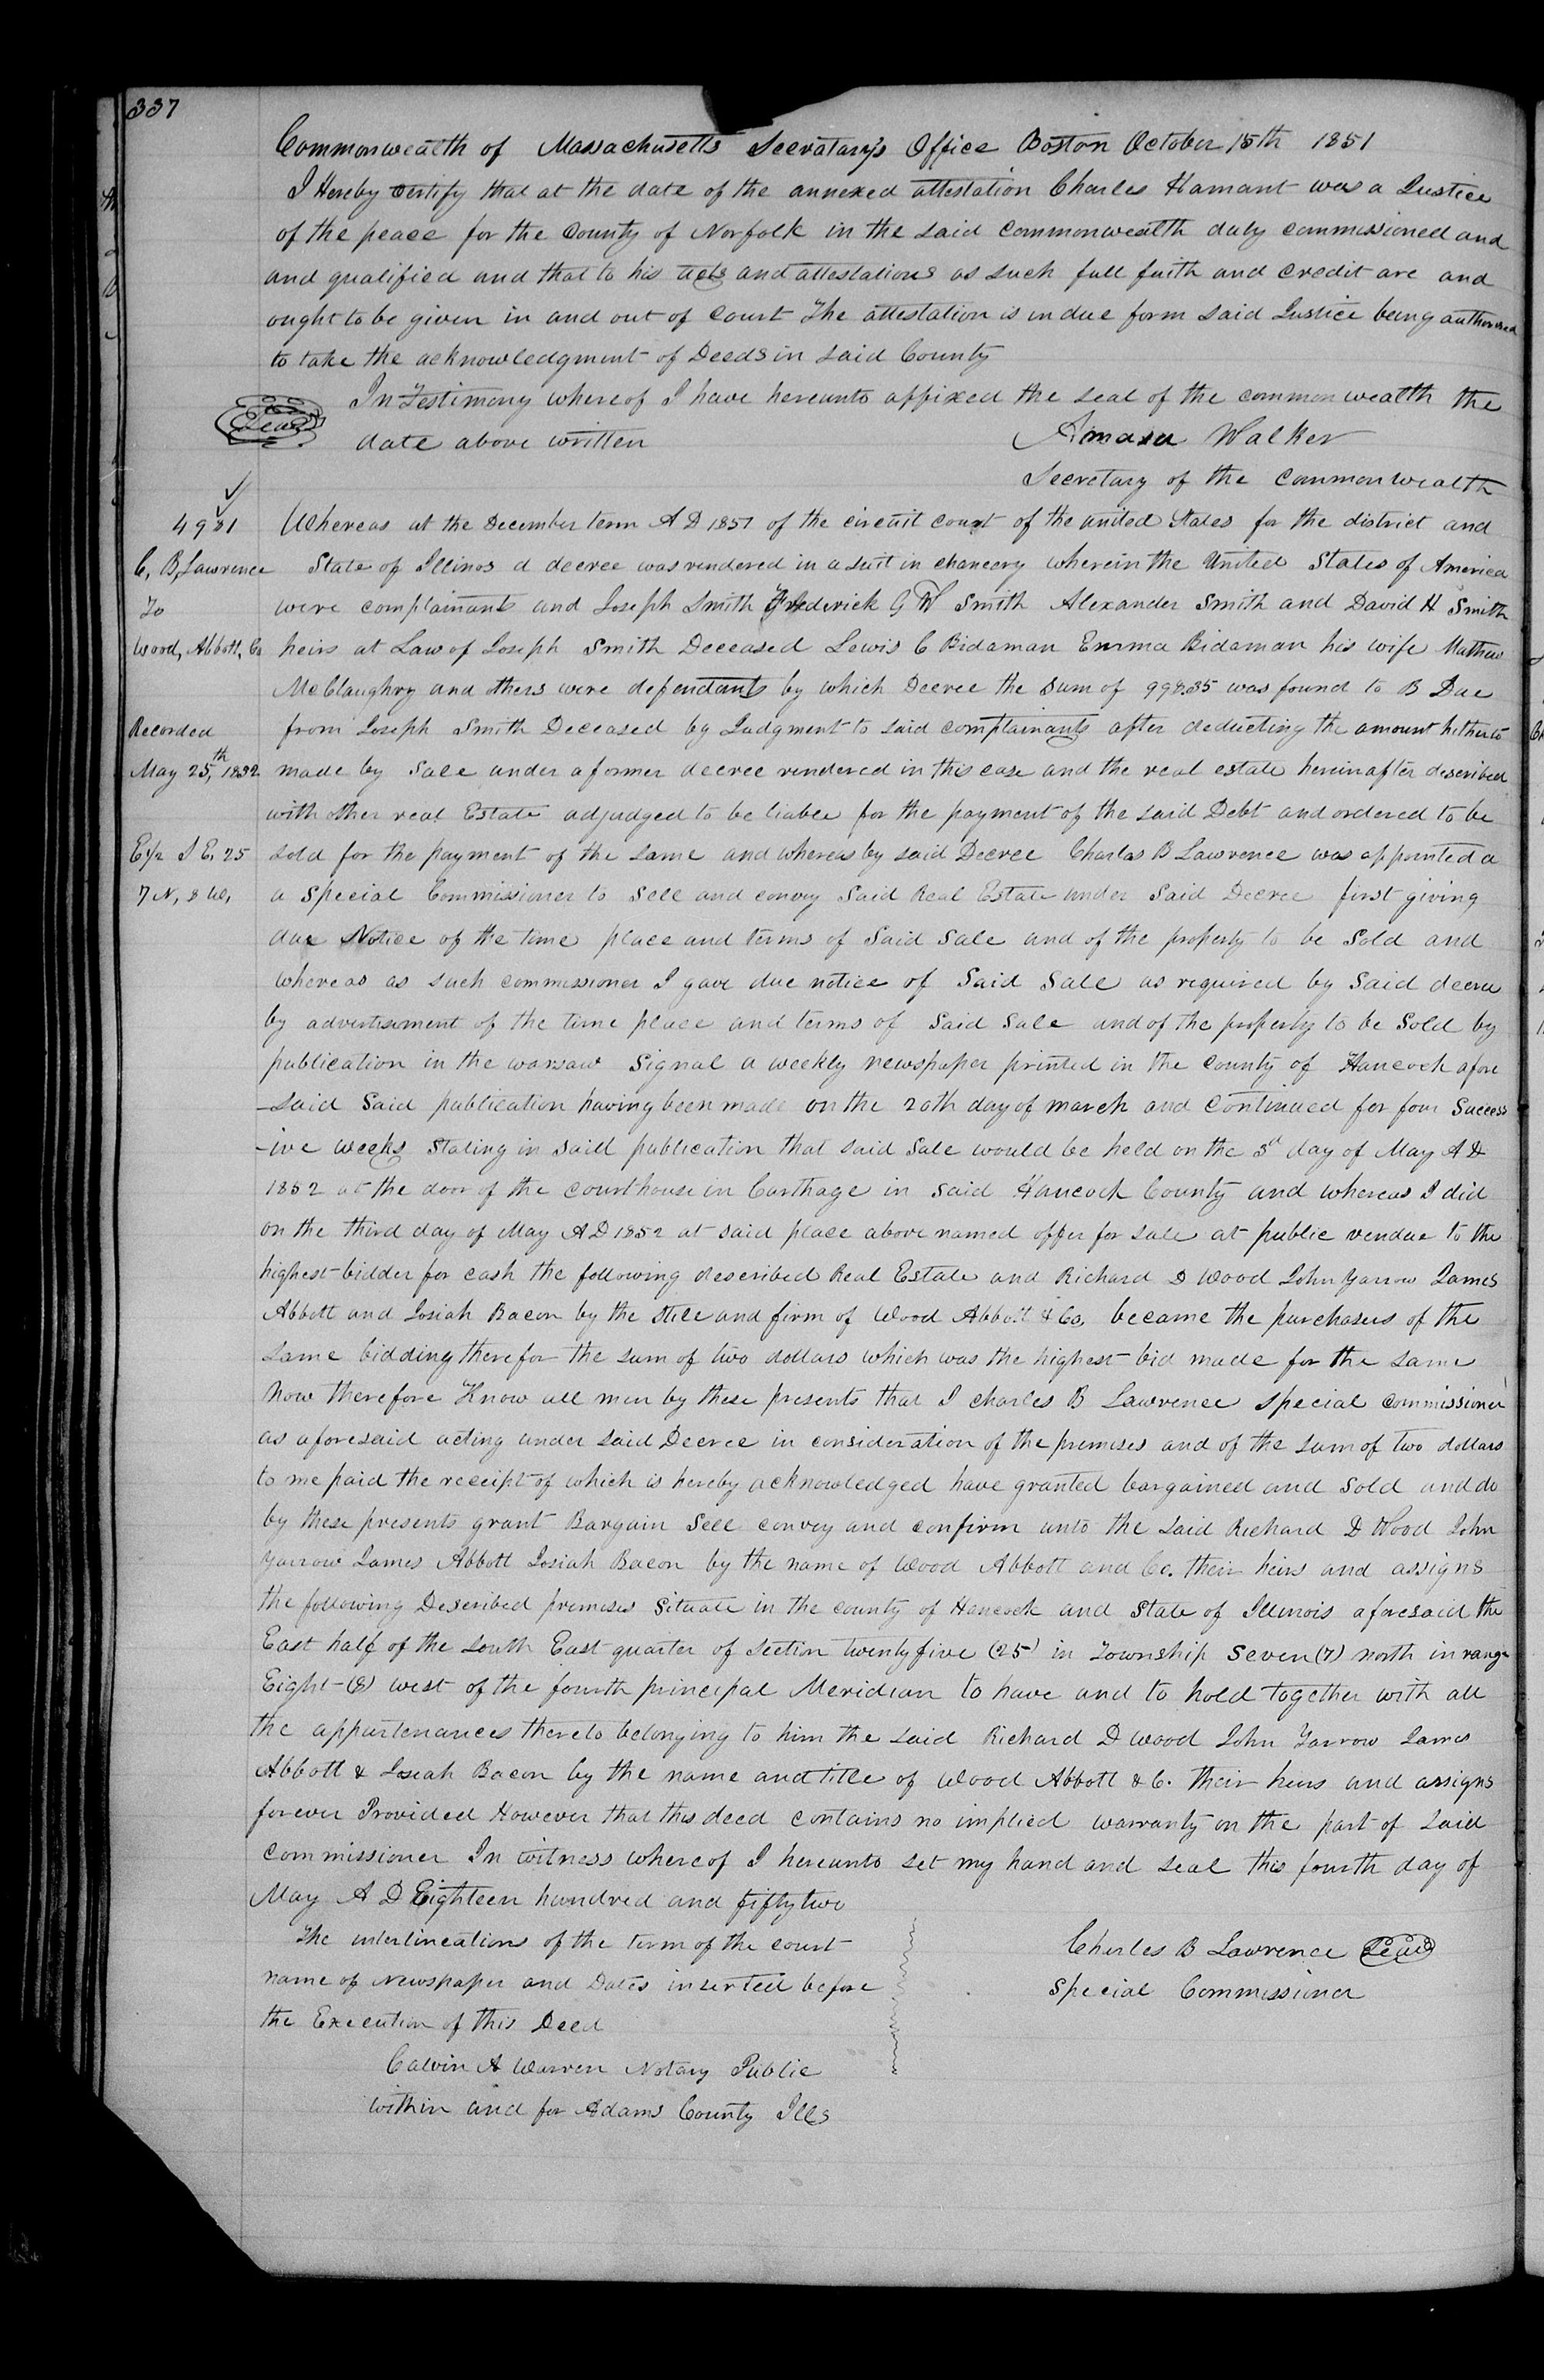 337
Commonwealth of Massachusetts Secratary's Office Boston October 15th 1851
I Hereby certify that at the date of the annexed attestation Charles Hamant was a Justice
of the peace for the County of Norfolk in the said commonwealth duly commissioned and
and qualified and that to his acts and attestations as such full faith and credit are and
ought to be given in and out of Court The attestation is in due form said Justice being authorised
to take the acknowledgment of Deeds in said County
In Testimony whereof I have hereunto affixed the seal of the commonwealth the
Seal
date above written
Amasa Walker
Secretary of the Commonwealth
4901
C, B, Lawrence
To
Wood, Abbott, Co
Recorded
May 25,th 1852
E1/2 S E, 25
7 N, 8 W,
Whereas at the December term A D 1851 of the circuit court of the united States for the district and
State of Illinos a decree was rendered in a suit in chancery wherein the United States of America
were complainants and Joseph Smith Frederick G W Smith Alexander Smith and David H Smith
heirs at Law of Joseph Smith Deceased Lewis C Bidaman Emma Bidaman his wife Mathew
McClaughry and others were defendants by which Decree the Sum of 998.35 was found to B Due
from Joseph Smith Deceased by Judgment to said complainants after deducting the amount hitherto
made by Sale under a former decree rendered in this case and the real estate hereinafter described
with other real Estate adjudged to be liable for the payment of the said Debt and ordered to be
sold for the payment of the same and whereas by said Decree Charles B Lawrence was appointed a
a Special Commissioner to Sell and convey Said Real Estate under Said Decree first giving
due Notice of the time place and terms of Said Sale and of the property to be Sold and
whereas as such commissioner I gave due notice of Said Sale as required by Said decree
by advertisement of the time place and terms of Said Sale and of the property to be Sold by
publication in the warsaw Signal a weekly newspaper printed in the County of Hancock afore
-said Said publication having been made on the 20th day of march and Continued for four Success
-ive weeks Stating in said publication that said Sale would be held on the 3d day of May A D
1852 at the door of the courthouse in Carthage in said Hancock County and whereas I did
on the third day of May A D 1852 at said place above named offer for sale at public vendue to the
highest bidder for cash the following described Real Estate and Richard D Wood John Yarrow James
Abbott and Josiah Bacon by the stile and firm of Wood Abbott & Co, became the purchasers of the
same bidding therefor the sum of two dollars which was the highest bid made for the same
Now therefore Know all men by these presents that I Charles B Lawrence special commissioner
as aforesaid acting under said Decree in consideration of the premises and of the sum of two dollars
to me paid the receipt of which is hereby acknowledged have granted bargained and Sold and do
by these presents grant Bargain Sell convey and confirm unto the said Richard D Wood John
Yarrow James Abbott Josiah Bacon by the name of Wood Abbott and Co. their heirs and assigns
the following Described premises Situate in the county of Hancock and State of Illinois aforesaid the
East half of the South East quarter of Section twentyfive (25) in Township Seven (7) north in range
Eight (8) west of the fourth principal Meridian to have and to hold together with all
the appurtenances thereto belonging to him the said Richard D Wood John Yarrow James
Abbott & Josiah Bacon by the name and title of Wood Abbott & C. their heirs and assigns
forever Provided However that this deed contains no implied warranty on the part of said
commissioner In witness whereof I hereunto set my hand and seal this fourth day of
May A D Eighteen hundred and fiftytwo
The interlineations of the term of the court
name of Newspaper and Dates inserted before
the Execution of this Deed
Calvin A Warren Notary Public
within and for Adams County Ills
Charles B Lawrence Seal
Special Commissioner